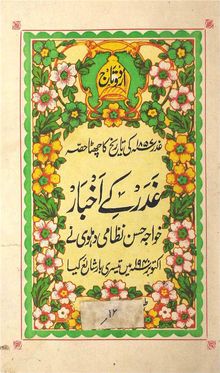 اردو تاج
غدر ۱۸۵۷ء کی تاریخ کا چھٹا حصہ
غدر کے اخبار
خواجہ حسن نظامی دہلوی نے
اکتوبر ۱۹۴۰ء میں تیسری بار شائع کیا
۱۲/